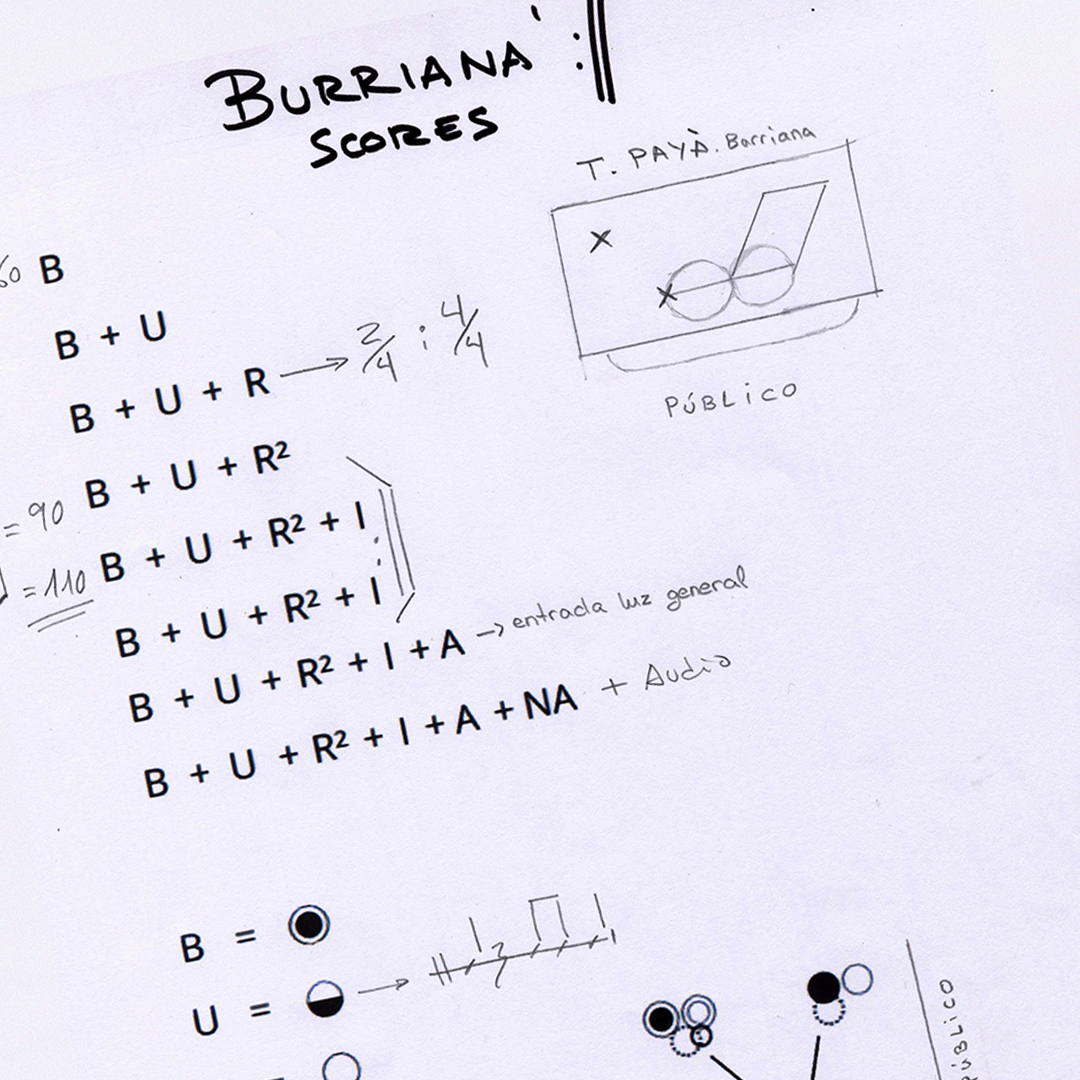 BURRIANA
SCORES
T. PAYÀ. Borriana
60 B
B + U
B + U + R → 2/4 : 4/4
PÚBLICO
B + U + R²
= 90
B + U + R² + I
= 110
B + U + R² + I
B + U + R² + I + A → entrada luz general
B + U + R² + I + A + NA + Audio
B =
U = →
PÚBLICO